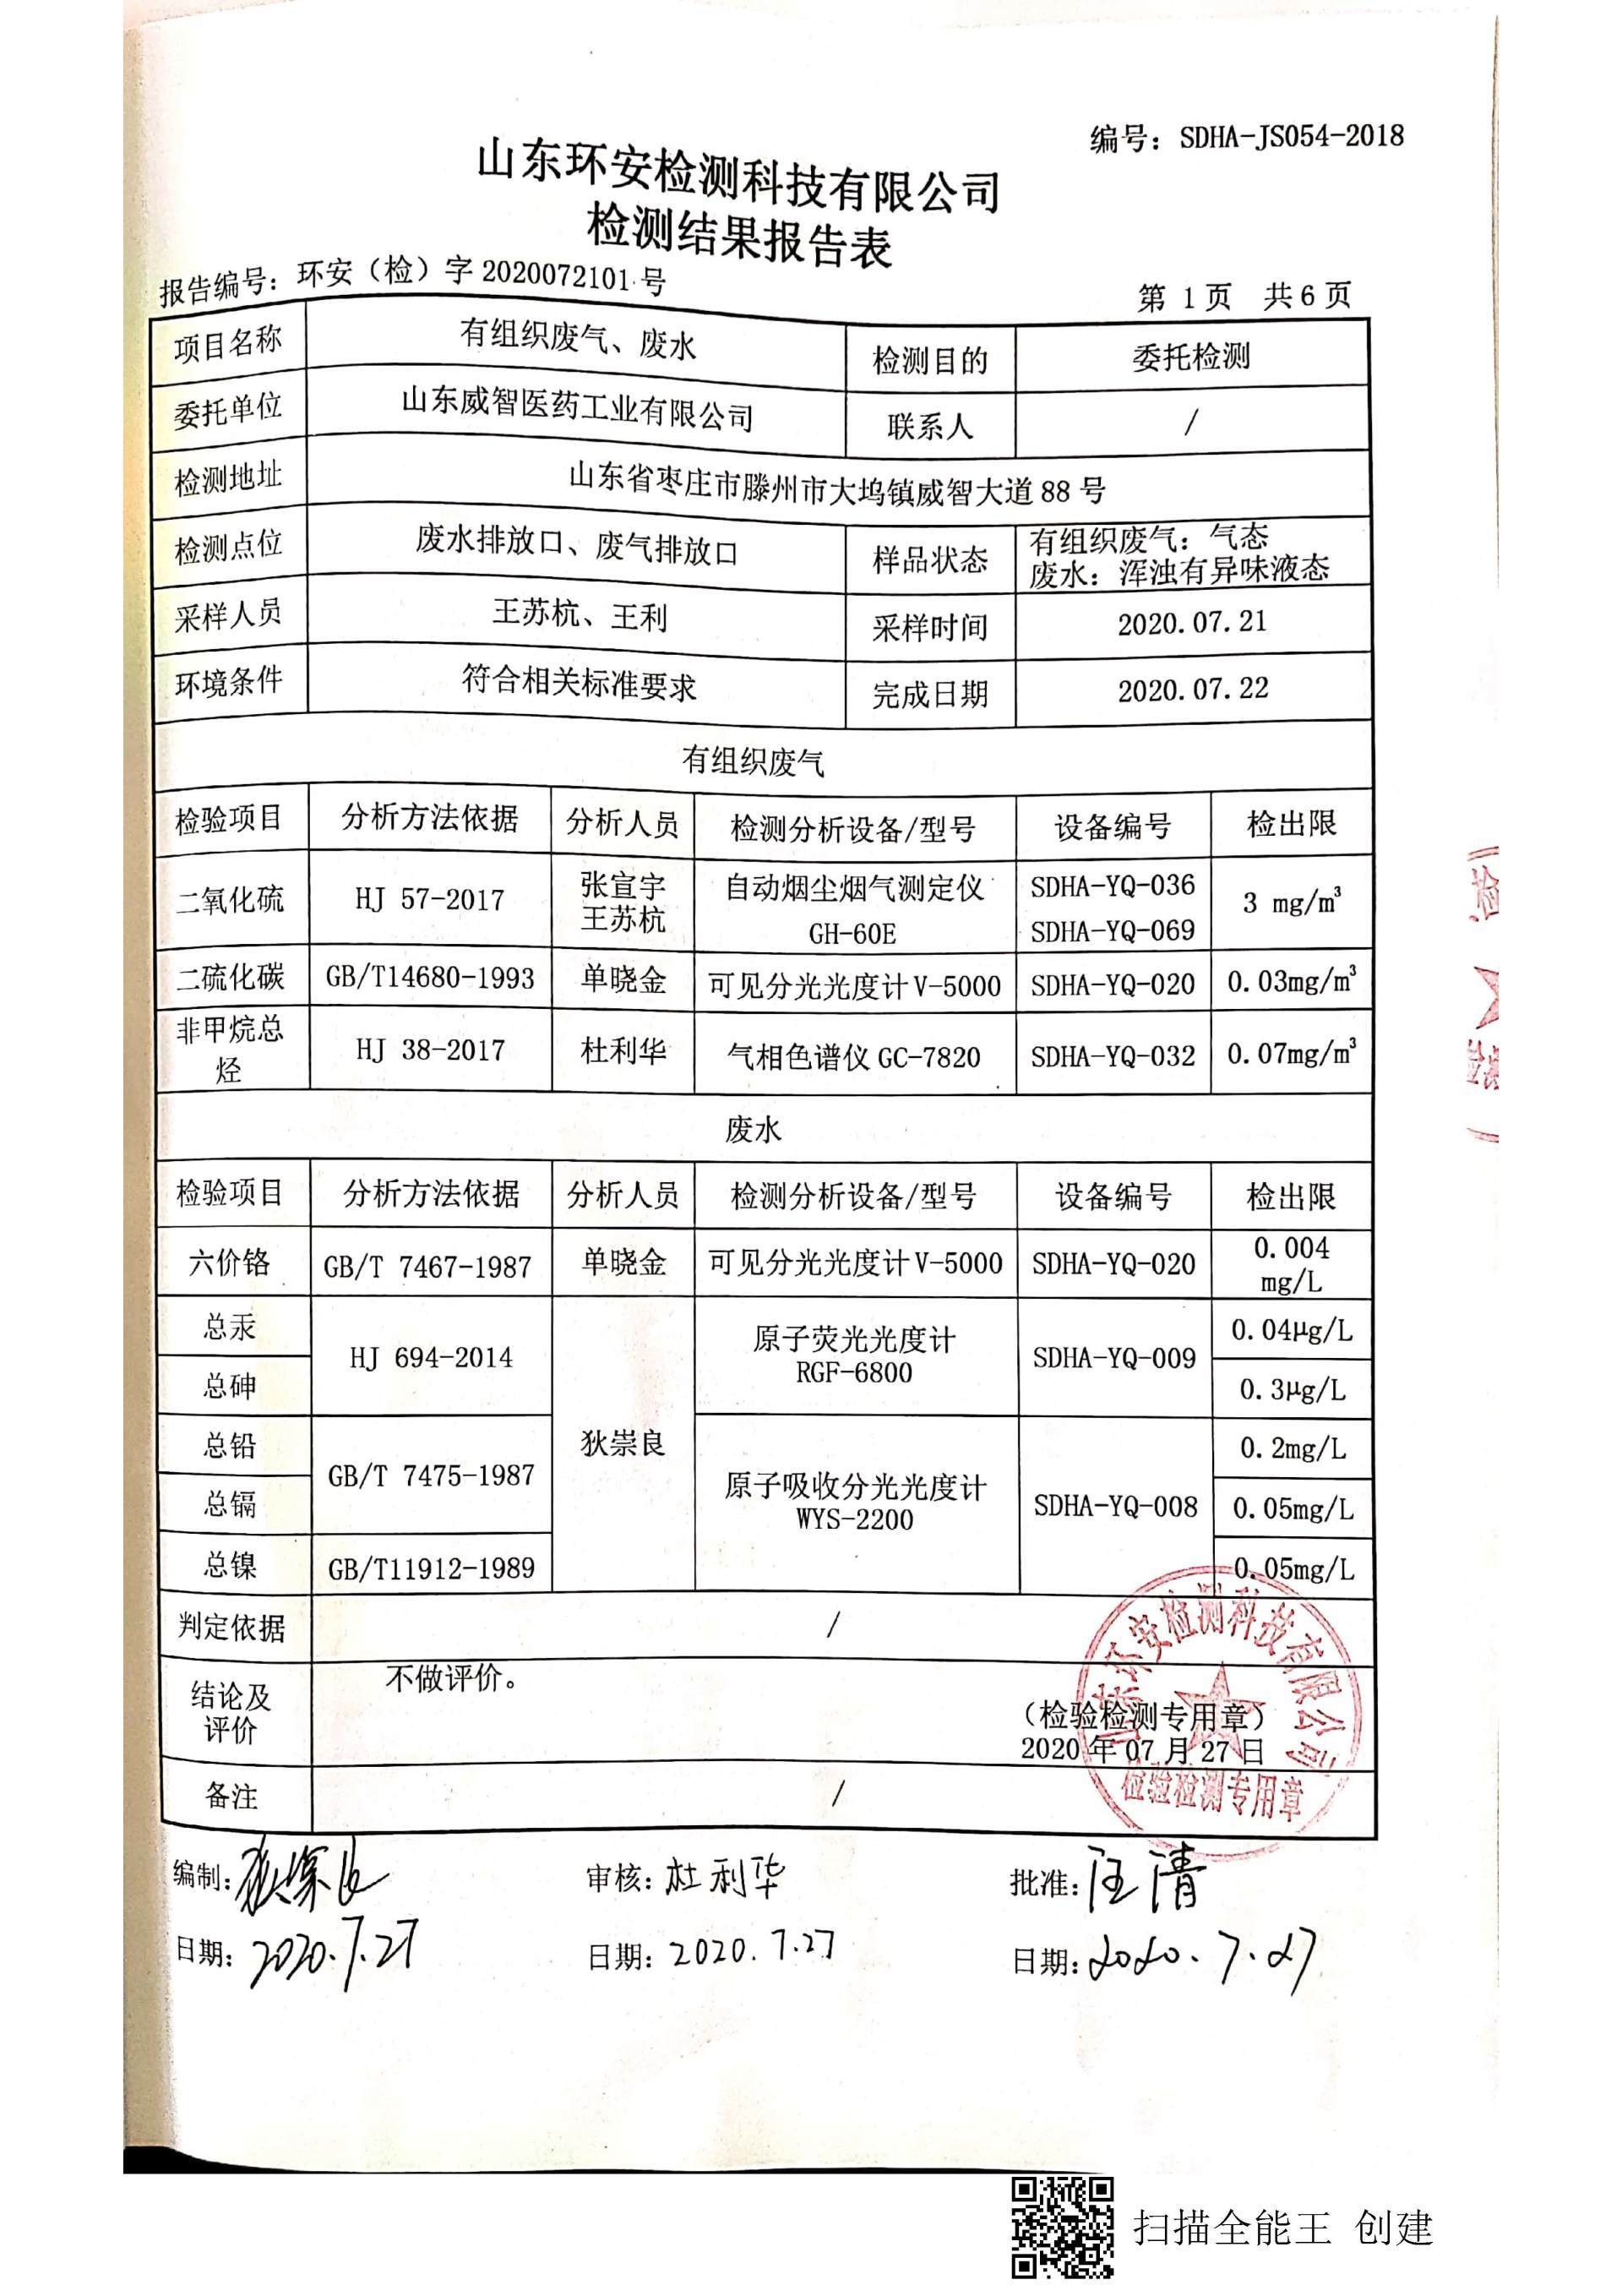 编号：SDHA-JS054-2018
山东环安检测科技有限公司
检测结果报告表
报告编号：环安（检）字 2020072101 号
第 1 页 共 6 页
项目名称 有组织废气、废水 检测目的 委托检测
委托单位 山东威智医药工业有限公司 联系人 /
检测地址 山东省枣庄市滕州市大坞镇威智大道 88 号
检测点位 废水排放口、废气排放口 样品状态 有组织废气：气态
废水：浑浊有异味液态
采样人员 王苏杭、王利 采样时间 2020.07.21
环境条件 符合相关标准要求 完成日期 2020.07.22
有组织废气
检验项目 分析方法依据 分析人员 检测分析设备/型号 设备编号 检出限
二氧化硫 HJ 57-2017 张宣宇 王苏杭 自动烟尘烟气测定仪 GH-60E SDHA-YQ-036 SDHA-YQ-069 3 mg/m³
二硫化碳 GB/T14680-1993 单晓金 可见分光光度计 V-5000 SDHA-YQ-020 0.03mg/m³
非甲烷总烃 HJ 38-2017 杜利华 气相色谱仪 GC-7820 SDHA-YQ-032 0.07mg/m³
废水
检验项目 分析方法依据 分析人员 检测分析设备/型号 设备编号 检出限
六价铬 GB/T 7467-1987 单晓金 可见分光光度计 V-5000 SDHA-YQ-020 0.004 mg/L
总汞 HJ 694-2014 狄崇良 原子荧光光度计 RGF-6800 SDHA-YQ-009 0.04μg/L
总砷 0.3μg/L
总铅 GB/T 7475-1987 原子吸收分光光度计 WYS-2200 SDHA-YQ-008 0.2mg/L
总镉 0.05mg/L
总镍 GB/T11912-1989 0.05mg/L
判定依据 /
结论及评价 不做评价。
（检验检测专用章）
2020 年 07 月 27 日
山东环安检测科技有限公司
检验检测专用章
备注 /
编制： 审核：杜利华 批准：汪清
日期：2020.7.27 日期：2020.7.27 日期：2020.7.27
扫描全能王 创建